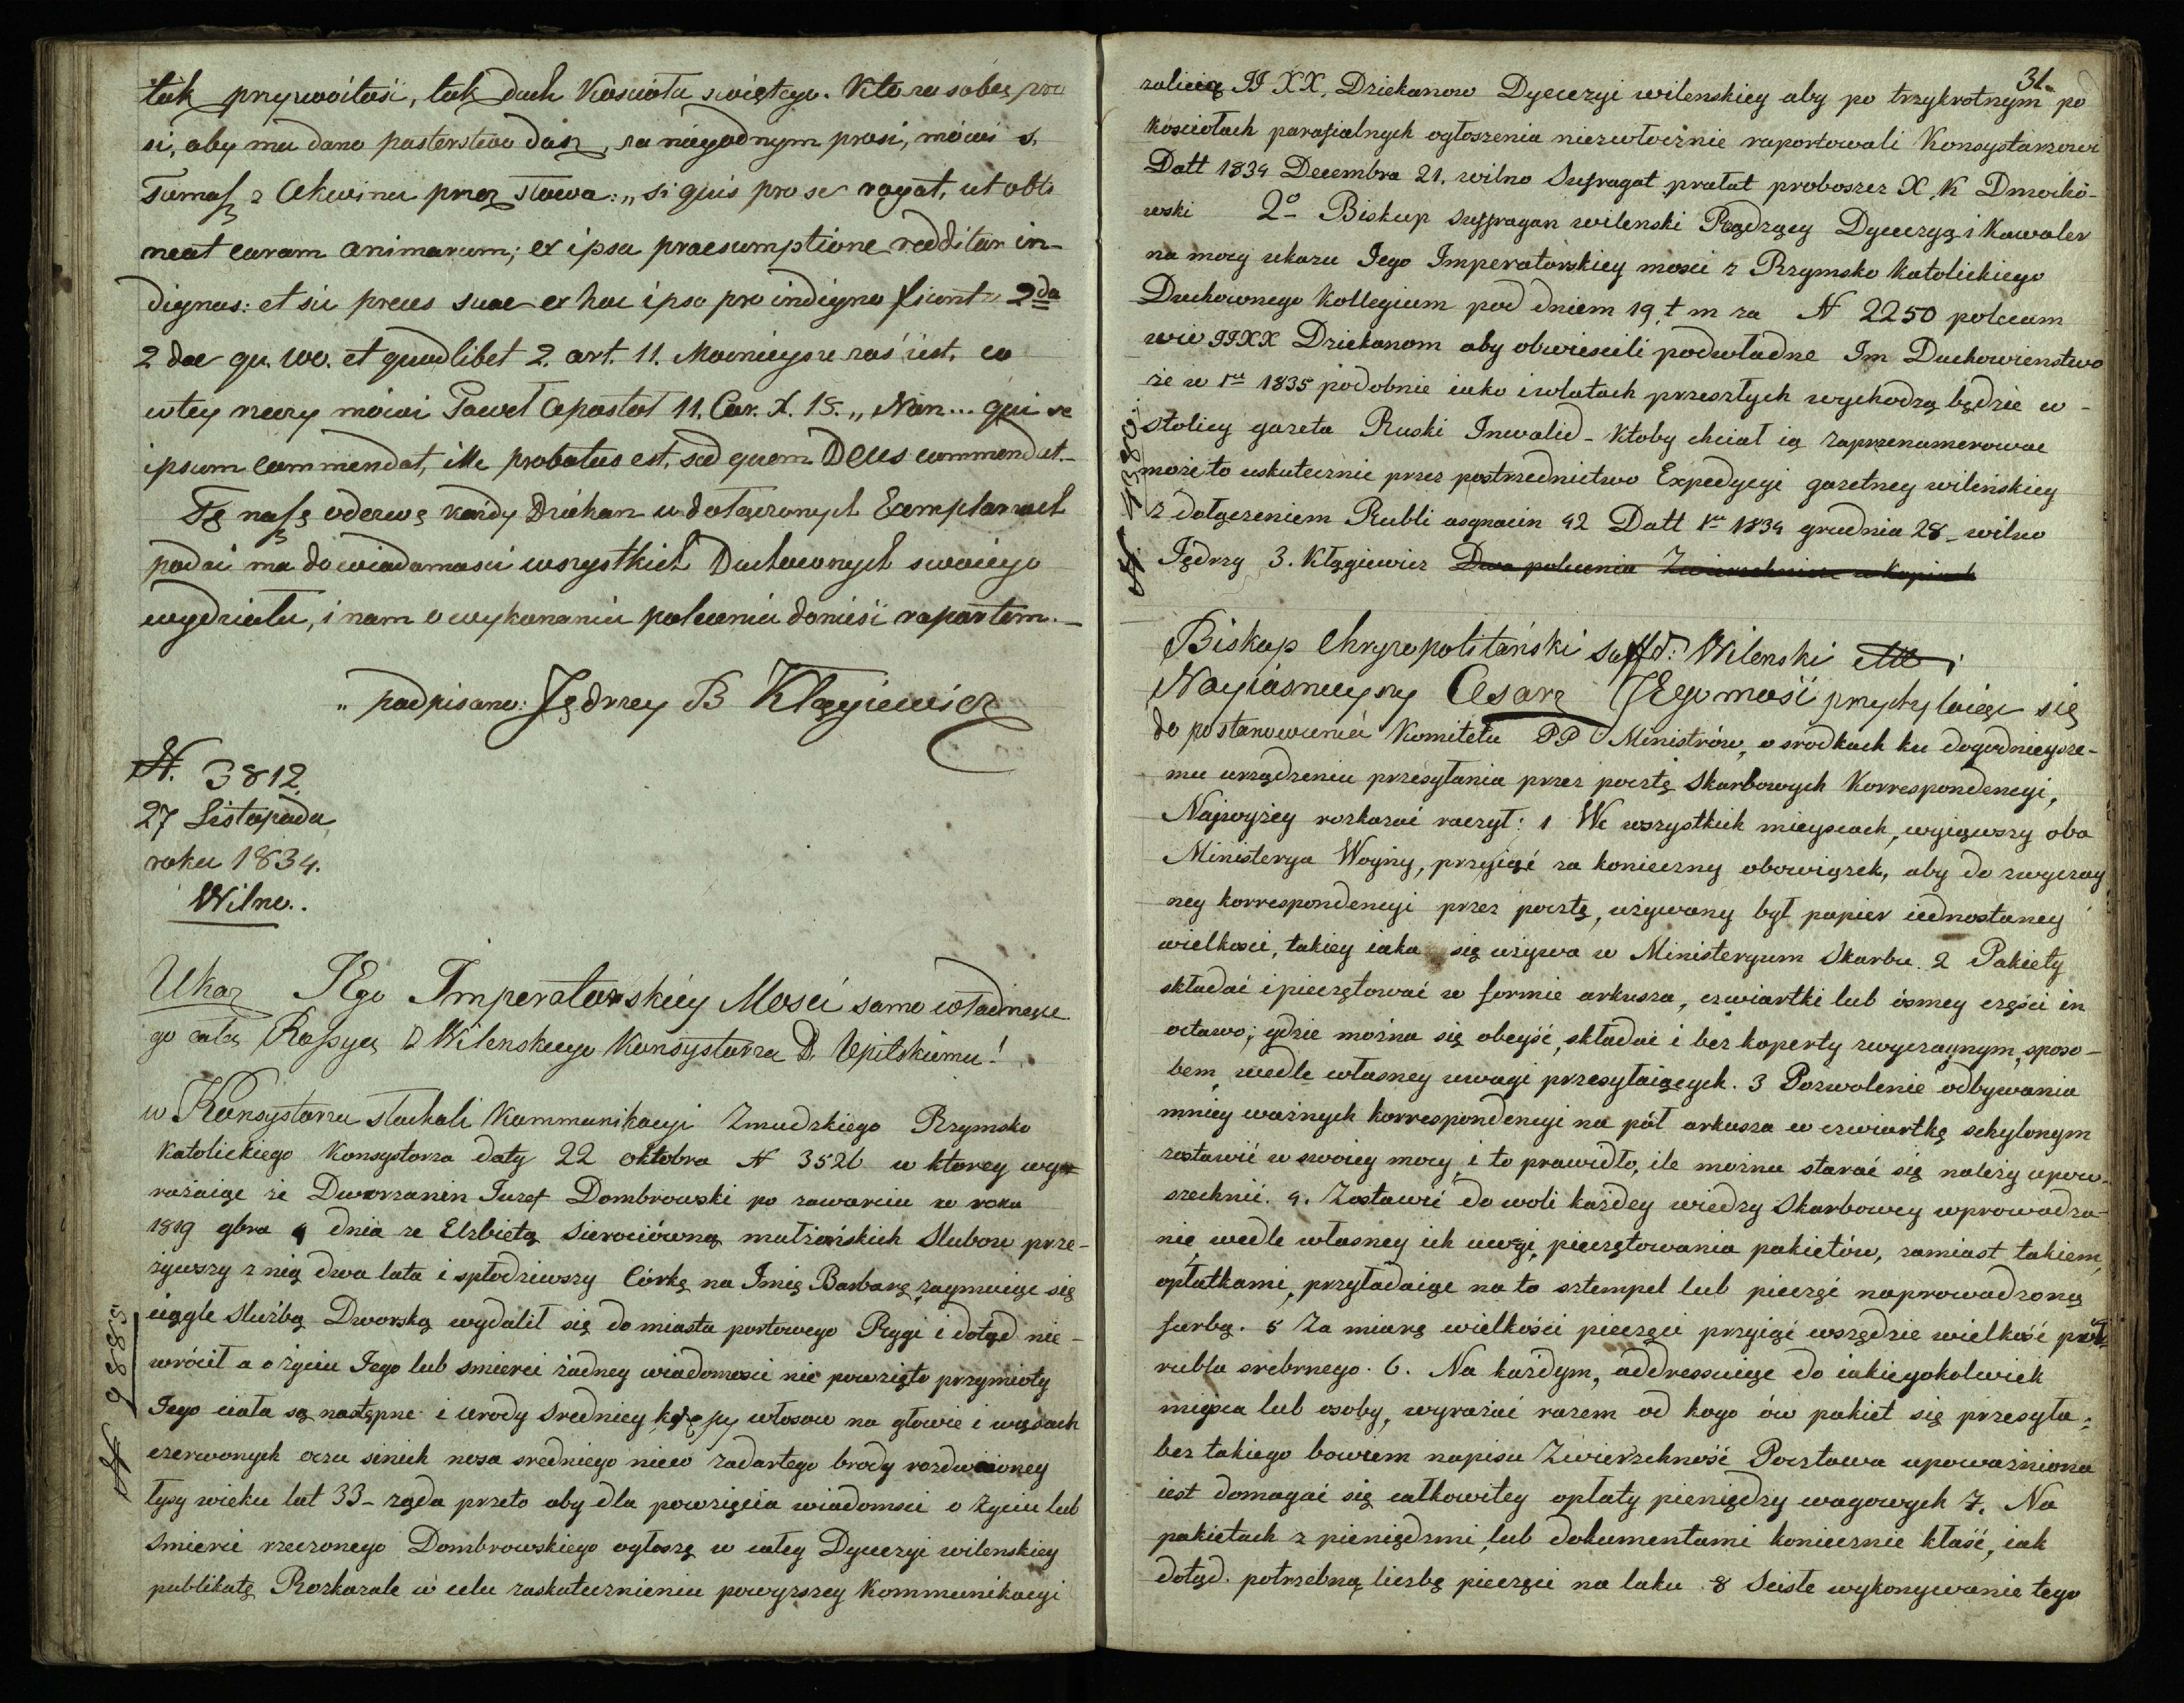 tak przyzwoitości, tak duch Kościoła świętego. Kto za sobą pro
si, aby mu dano pasterstwo dusz, za niegodnym prosi, mówi s.
Tomasz z Akwinu przez słowa: „si quis pro se rogat, ut obti
neat curam animarum; ex ipsa praesumptione redditur in-
dignus: et sic preces suae ex hoc ipso pro indigno fiunt" 2da
2dae qu. 100. et quodlibet 2. art. 11. Mocnieysze zaś iest, co
w tey rzeczy mówi Paweł Apostoł 11. Cor. X. 18. „Non... qui se
ipsum commendat, ille probatus est, sed quem Deus commendat.–
Tę naszę odezwę każdy Dziekan w dołączonych Exemplarzach
podać ma do wiadomości wszystkich Duchownych swoiego
wydziału, i nam o wykonaniu polecenia donieść raportem.–
„ podpisano: Jędrzey B Kłągiewicz
N. 3812.
27 Listopada
roku 1834.
Wilno.
Ukaz JEgo Imperatorskiéy Mości samowładnące
go całą Rossyą z Wilenskiego Konsystorza D. Upitskiemu!
w Konsystorzu słuchali Kommunikacyi Zmudzkiego Rzymsko
Katolickiego Konsystorza daty 22 oktobra N 3526 w ktorey wy
rażaiąc że Dworzanin Juzef Dombrowski po zawarciu w roku
1819 gbra 9 dnia ze Elzbietą Sierociówną małżańskich Slubow prze-
żywszy z nią dwa lata i spłodziwszy Córkę na Imię Barbarę zaymuiąc się
ciągle Służbą Dworską wydalił się do miasta portowego Rygi i dotąd nie-
wrócił a o życiu Jego lub smierci żadney wiadomosci nie powzięto przymioty
Jego ciała są następne i urody sredniey kępy włosow na głowie i wąsach
czerwonych oczu sinich nosa sredniego nieco zadartego brody rozdwoioney
łysy wieku lat 33– żąda przeto aby dla powzięcia wiadomsci o życiu lub
Smierci rzeczonego Dombrowskiego ogłoszę w całey Dyecezyi wilenskiey
publikatę Rozkazale w celu zaskutecznieniu powyzszey Kommunikacyi
N 9885
31.
zalicią JJ XX. Dziekanow Dyecezyi wilenskiey aby po trzykrotnym po
kosciołach parafialnych ogłoszenia niezwłocznie raportowali Konsystorzowi
Datt 1834 Decembra 21. wilno Sufragat prałat proboszcz X. K Dmocho-
wski 2o Biskup Suffragan wilenski Rządzący Dyecezyą i Kawaler
na mocy ukazu Jego Imperatorskiey mosci z Rzymsko Katolickiego
Duchownego Kollegium pod dniem 19 t m za N 2250 polecam
wie JJXX Dziekanom aby obwiescili podwładne Im Duchowienstwo
że w ru 1835 podobnie iako i w latach przeszłych wychodzą będzie w-
Stolicy gazeta Ruski Inwalid– Ktoby chciał ią zaprenumerowac
może to uskutecznic przez postrzednictwo Expedycyi gazetney wilenskiey
z dołączeniem Rubli asygnacin 42 Datt ru 1834 grudnia 28– wilno
Jędrzy 3. Kłągiewicz Dwa polecenia Zwierzchnicze w kopiach
N. 4380.
Biskup Chryzopolitański Suffd: Wilenski
Nayiásnieyszy Cesarz JEgomość przychylaiąc się
do postanowienia Komitetu PP Ministrów, o srodkach ku dogodnieysze-
mu urządzeniu przesyłania przez pocztę Skarbowych Korrespondencyi,
Najwyżey rozkazać raczył: 1 We wszystkich mieyscach, wyiąwszy oba
Ministerya Woyny, przyiąć za konieczny obowiązek, aby do zwyczay
ney korrespondencyi przez pocztę, używany był papier iednostaney
wielkosci, takiey iaka się używa w Ministeryum Skarbu. 2 Pakiety
składać i pieczętować w formie arkusza, czwiartki lub ósmey części in
octavo; gdzie można się obeyść, składać i bez koperty zwyczaynym sposo-
bem, wedle własney uwagi przesyłaiących. 3 Pozwolenie odbywania
mniey ważnych korrespondencyi na pół arkusza w czwiartkę schylonym
zostawić w swoiey mocy, i to prawidło, ile można starać się należy upow-
szechnić. 4. Zostawić do woli każdey wiedzy Skarbowey wprowadze-
nie wedle własney ich uwagi, pieczętowania pakietów, zamiast lakiem,
opłatkami, przykładaiąc na to sztempel lub pieczęć naprowadzoną
farbą. 5 Za miarę wielkości pieczęci przyiąć wszędzie wielkość pół
rubla srebrnego. 6. Na każdym, addressuiąc do iakiegokolwiek
mieysca lub osoby, wyrażać razem od kogo ów pakiet się przesyła;
bez takiego bowiem napisu Zwierzchność Pocztowa upoważniona
iest domagać się całkowitey opłaty pieniędzy wagowych 7. Na
pakietach z pieniędzmi, lub dokumentami koniecznie kłaść, iak
dotąd potrzebną liczbę pieczęci na laku. 8 Sciste wykonywanie tego